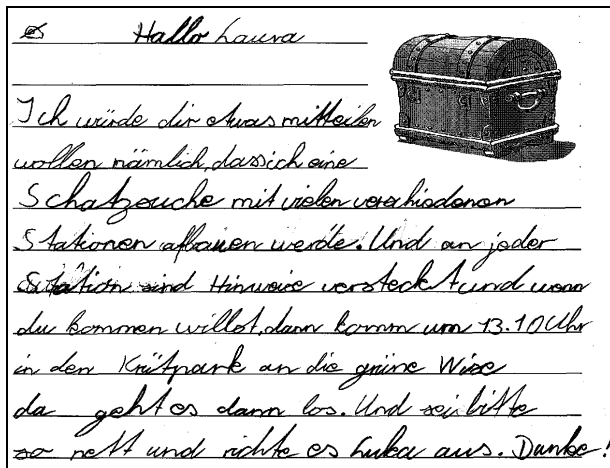 Hallo Laura
Ich würde dir etwas mitteilen
wollen nämlich, dass ich eine
Schatzsuche mit vielen verschiedenen
Stationen afbauen werde. Und an jeder
Station sind Hinweise versteckt und wenn
du kommen willst, dann komm um 13.10 Uhr
in den Krütpark an die grüne Wise
da geht es dann los. Und sei bitte
so nett und richte es Luka aus. Danke!